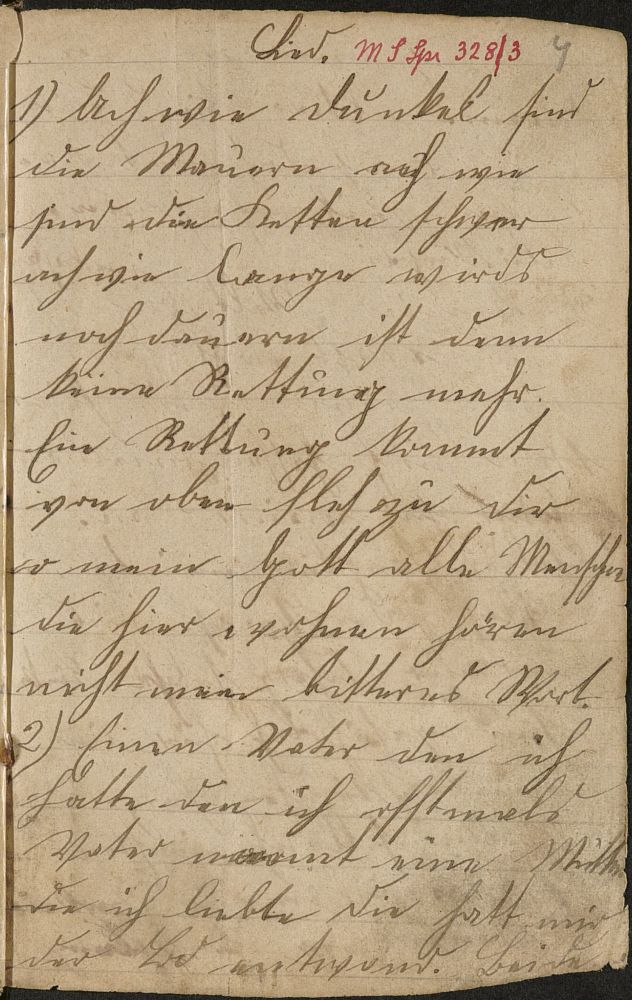 Lied. M S Spr 328/3 4
1) Ach wie dunkel sind
die Mauern ach wie
sind die Ketten schwer
ach wie lange wirds
noch dauern ist denn
keine Rettung mehr.
Eine Rettung kommt
von oben fleh zu dir
o mein Gott alle Menschen
die hier wohnen hören
nicht mein bitteres Wort.
2) Einen Vater den ich
hatte den ich offtmals
Vater nannt eine Mutter
die ich liebte die hatt mir
der Tod entwand. Beide